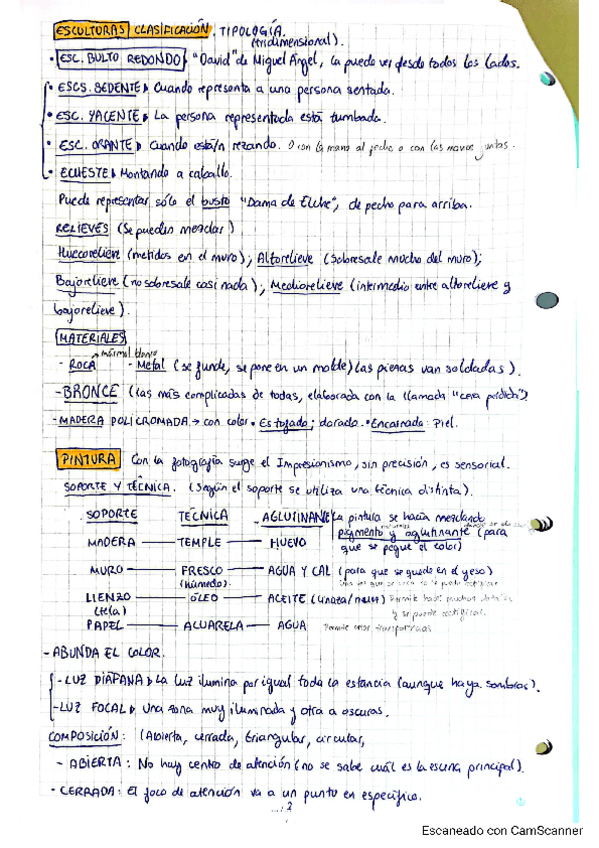 ESCULTURAS CLASIFICACIÓN. TIPOLOGÍA.
(tridimensional).
• ESC. BULTO REDONDO: "David" de Miguel Ángel, la puedo ver desde todos los lados.
• ESCS. SEDENTE: Cuando representa a una persona sentada.
• ESC. YACENTE: La persona representada está tumbada.
• ESC. ORANTE: Cuando está/n rezando. O con la mano al pecho o con las manos juntas.
• ECUESTE: Montando a caballo.
Puede representar sólo el busto "Dama de Elche", de pecho para arriba.
RELIEVES (Se pueden mezclar)
Huecorelieve (metidos en el muro); Altorelieve (Sobresale mucho del muro);
Bajorelieve (no sobresale casi nada); Mediorelieve (intermedio entre altorelieve y
bajorelieve).
MATERIALES
mármol blanco
- ROCA - Metal (se funde, se pone en un molde) (las piezas van soldadas).
- BRONCE (las más complicadas de todas, elaborada con la llamada "cera perdida")
- MADERA POLICROMADA → con color • Estofado: dorado. • Encarnada: Piel.
PINTURA Con la fotografía surge el Impresionismo, sin precisión, es sensorial.
SOPORTE Y TÉCNICA. (Según el soporte se utiliza una técnica distinta).
SOPORTE TÉCNICA AGLUTINANTE La pintura se hacía mezclando
pigmento y aglutinante (para
MADERA — TEMPLE — HUEVO que se pegue el color)
MURO — FRESCO — AGUA Y CAL (para que se quede en el yeso)
(húmedo).
LIENZO — ÓLEO — ACEITE (linaza/nuez) Permite hacer muchos detalles
(tela) y se puede rectificar.
PAPEL — ACUARELA — AGUA Permite crear transparencias
- ABUNDA EL COLOR.
- LUZ DIÁFANA: La luz ilumina por igual toda la estancia (aunque haya sombras).
- LUZ FOCAL: Una zona muy iluminada y otra a oscuras.
COMPOSICIÓN: (Abierta, cerrada, triangular, circular,
- ABIERTA: No hay centro de atención (no se sabe cuál es la escena principal).
- CERRADA: El foco de atención va a un punto en específico.
2
Escaneado con CamScanner